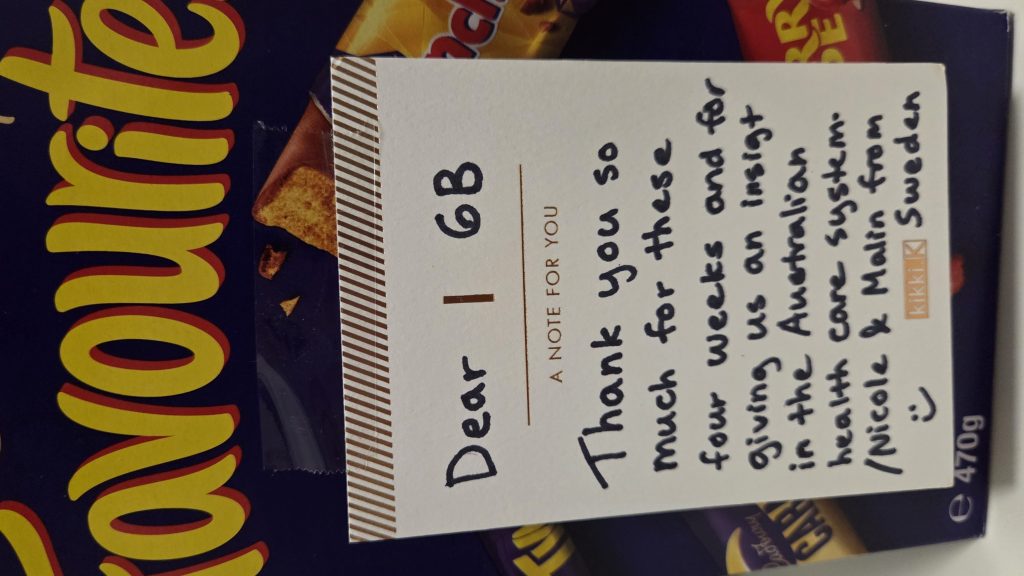 Favourite
Dear | 6B
A NOTE FOR YOU
Thank you so
much for these
four weeks and for
giving us an insigt
in the Australian
health care system.
/Nicole & Malin from
:) kikki.K Sweden
e 470g